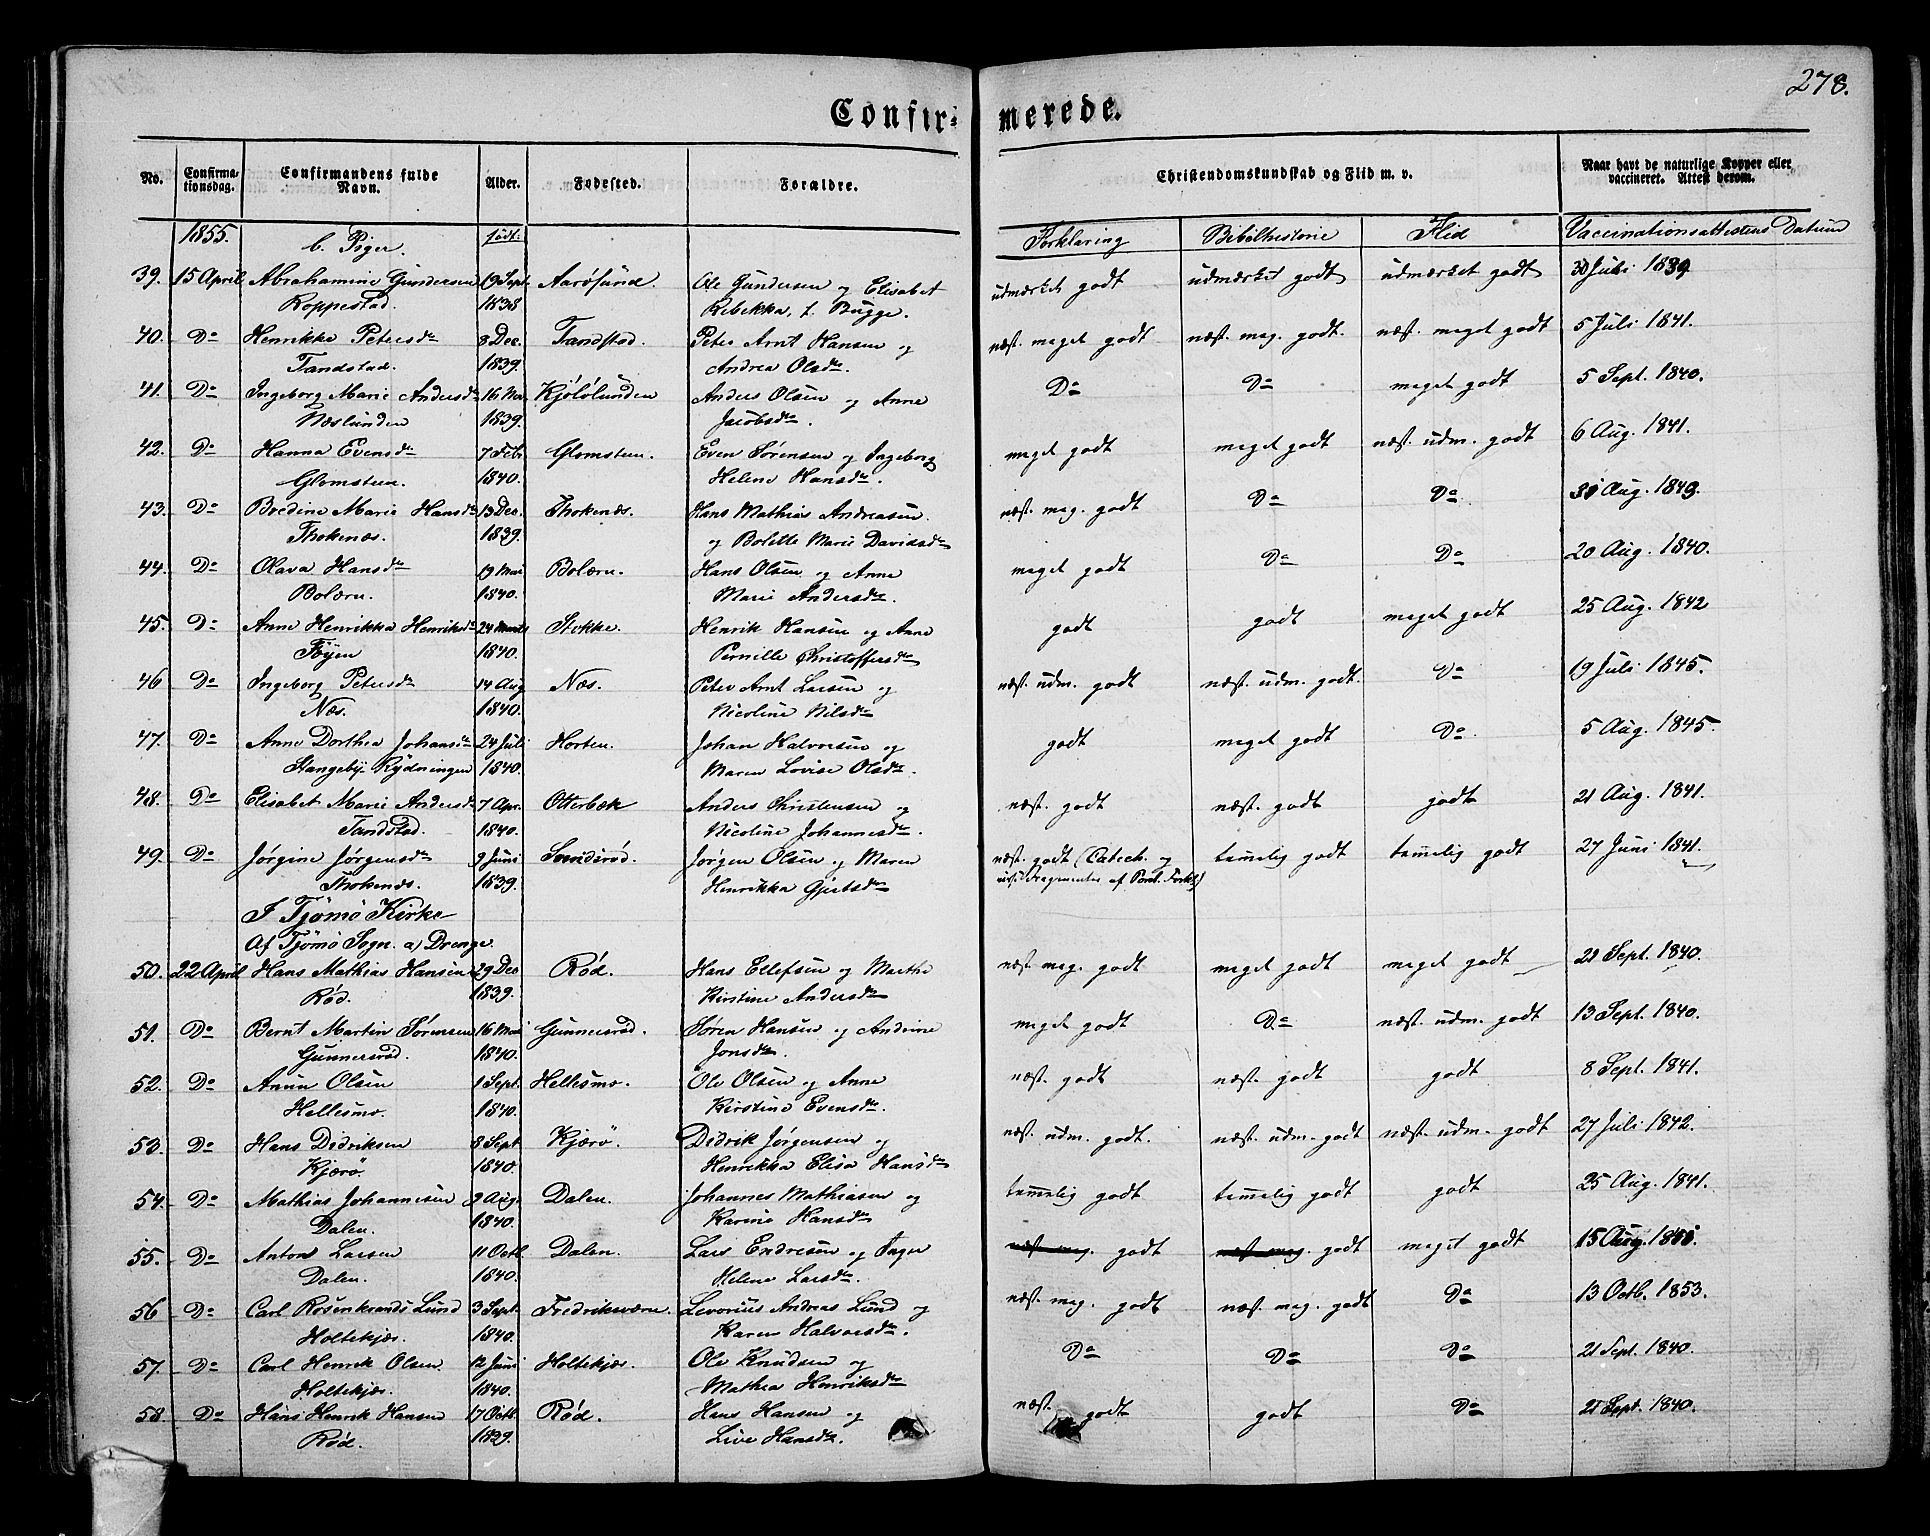 278.
Confir- merede.
No. Confirmationsdag. Confirmandens fulde Navn. Alder. Fødested. Forældre. Christendomskundskab og Flid m. v. Naar havt de naturlige Kopper eller vaccineret. Attest derom.
1855. b. Piger. født: Forklaring Bibelhistorie Flid Vaccinationsattestens Datum
39. 15 April Abrahamine Gundersen 19 Sept. Aarøsund. Ole Gundersen og Elisabet udmærket godt udmærket godt udmærket godt 30 Juli 1839
Roppestad. 1838 Rebekka, f. Bugge.
40. Do Henrikke Petersdr 8 Dec. Tandstad. Peter Arnt Hansen og næst. meget godt næst. meg. godt. næst. meget godt 5 Juli 1841.
Tandstad. 1839. Andrea Olsdr.
41. Do Ingeborg Marie Andersdr 16 Nov. Kjølølunden Anders Olsen og Anne Do Do meget godt 5 Sept. 1840.
Næslunden 1839. Jacobsdr.
42. Do Hanna Evensdr 7 Feb. Glomsten. Even Sørensen og Ingeborg meget godt meget godt næst. udm. godt 6 Aug. 1841.
Glomsten. 1840. Helene Hansdr.
43. Do Bredine Marie Hansdr 13 Dec. Thokenæs. Hans Mathias Andreasen næst. meg. godt Do Do. 30 Aug. 1849.
Thokenæs. 1839. og Bolette Marie Davidsdr
44. Do Olava Hansdr 19 Mai Bolærn. Hans Olsen og Anne meget godt Do Do. 20 Aug. 1840.
Bolærn. 1840. Marie Andersdr.
45. Do Anne Henrikka Henriksdr 24 Marts Stokke. Henrik Hansen og Anne godt godt meget godt 25 Aug. 1842
Føyen 1840. Pernille Christoffersdr
46 Do Ingeborg Petersdr 14 Aug Næs. Peter Arnt Larsen og næst. udm. godt næst. udm. godt. Do 19 Juli 1845.
Næs. 1840. Nicoline Nilsdr
47. Do Anne Dorthea Johansdr 24 Juli Horten. Johan Halvorsen og godt meget godt Do. 5 Aug. 1845.
Stangeby Rydningen 1840. Maren Lovise Olsdr.
48. Do Elisabet Marie Andersdr 7 Apr. Otterbæk Anders Christensen og næst. godt næst. godt godt 21 Aug. 1841.
Tandstad. 1840. Nicoline Johannesdr
49. Do Jørgine Jørgensdr 9 Juni Sundsrød. Jørgen Olsen og Maren næst. godt (Catech. og temelig godt temelig godt 27 Juni 1841.
Thokenæs. 1839. Henrikka Gjertsdr Fragmenter af Pont. Forkl.)
I Tjømø Kirke
Af Tjømø Sogn. a) Drenge.
50. 22 April Hans Mathias Hansen 29 Dec Rød. Hans Ellefsen og Marthe næst meg. godt meget godt meget godt 21 Sept. 1840.
Rød. 1839. Kirstine Andersdr
51. Do Bernt Martin Sørensen 16 Mai Gunnersrød. Søren Hansen og Andrine meget godt Do næst. udm. godt 13 Sept. 1840.
Gunnersrød. 1840. Jonsdr.
52. Do Anun Olsen 1 Sept. Hellesmo. Ole Olsen og Anne næst. godt næst. godt godt 8 Sept. 1841.
Hellesmo. 1840. Kirstine Evensdr.
53. Do Hans Didriksen 8 Sept Kjærø. Didrik Jørgensen og næst. udm. godt. næst. udm. godt næst. udm. godt 27 Juli 1842.
Kjærø. 1840. Henrikka Elisa Hansdr
54. Do Mathias Johannesen 9 Aug. Dalen. Johannes Mathiasen og temelig godt temelig godt godt 25 Aug. 1841.
Dalen. 1840. Karine Hansdr
55. Do Anton Larsen 11 Octb. Dalen. Lars Endresen og Inger næst meg. godt næst meg. godt meget godt 15 Aug. 1841.
Dalen. 1840. Helene Larsdr.
56 Do Carl Rosenkrands Lund 3 Sept. Fredriksværn. Levorius Andreas Lund og næst meg. godt næst. meg. godt Do 13 Octb. 1853.
Holtekjær. 1840. Karen Halvorsdr.
57. Do Carl Henrik Olsen 12 Juni Holtekjær. Ole Knudsen og Do Do Do 21 Sept. 1840.
Holtekjær. 1840. Mathea Henriksdr
58 Do Hans Henrik Hansen 17 Octb. Rød. Hans Hansen og næst. godt godt Do 21 Sept. 1840.
Rød. 1839. Live Hansdr.